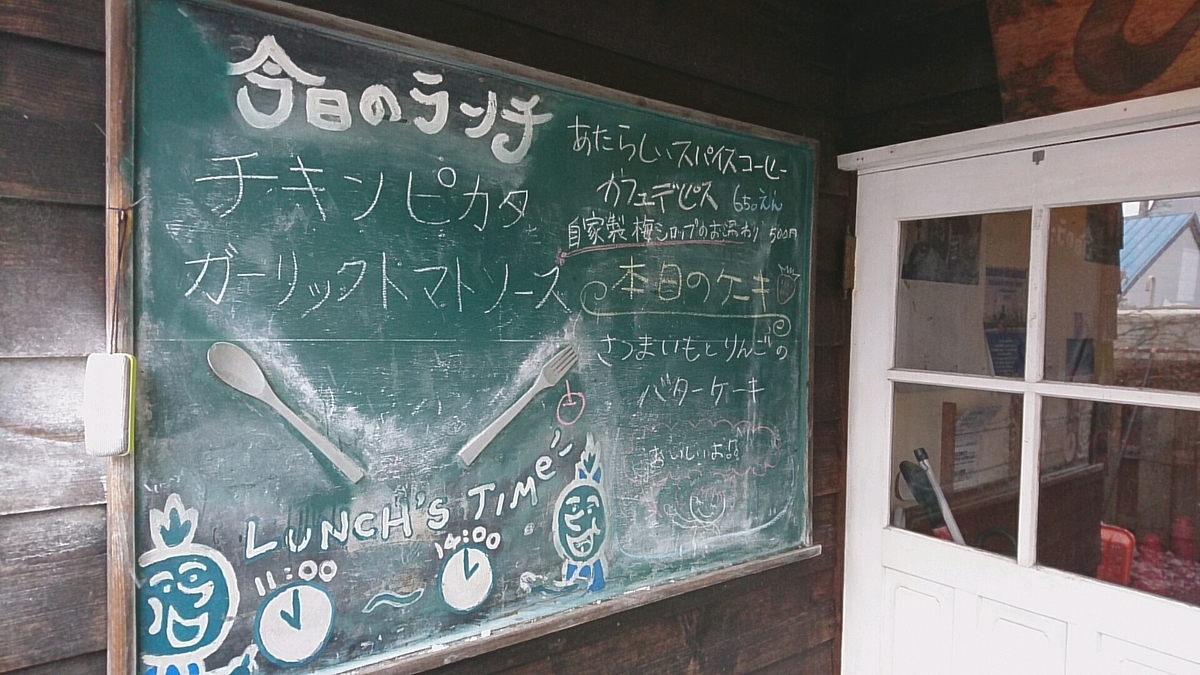 今日のランチ
チキンピカタ
ガーリックトマトソース
LUNCH'S TIME
11:00
〜
14:00
あたらしいスパイスコーヒー
カフェデピス 650えん
自家製梅シロップのお湯わり 500円
本日のケーキ
さつまいもとりんごの
バターケーキ
おいしいよ